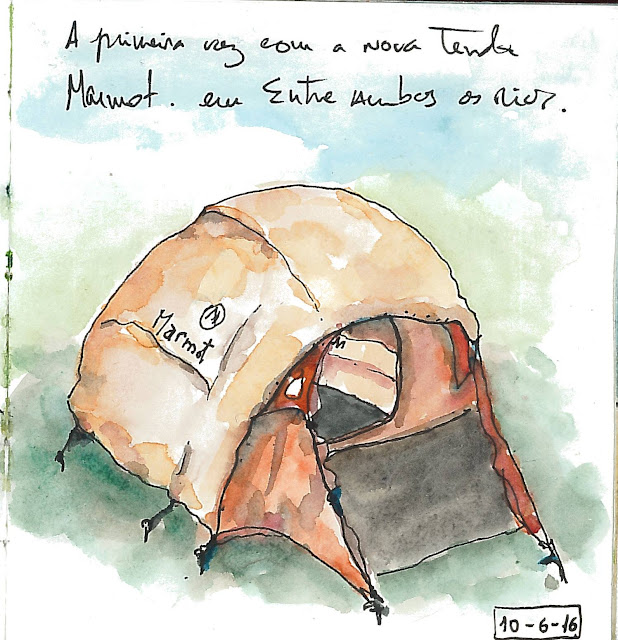 A primeira vez com a nova Tenda
Marmot. em Entre Ambos os Rios.
Marmot
M
10-6-16